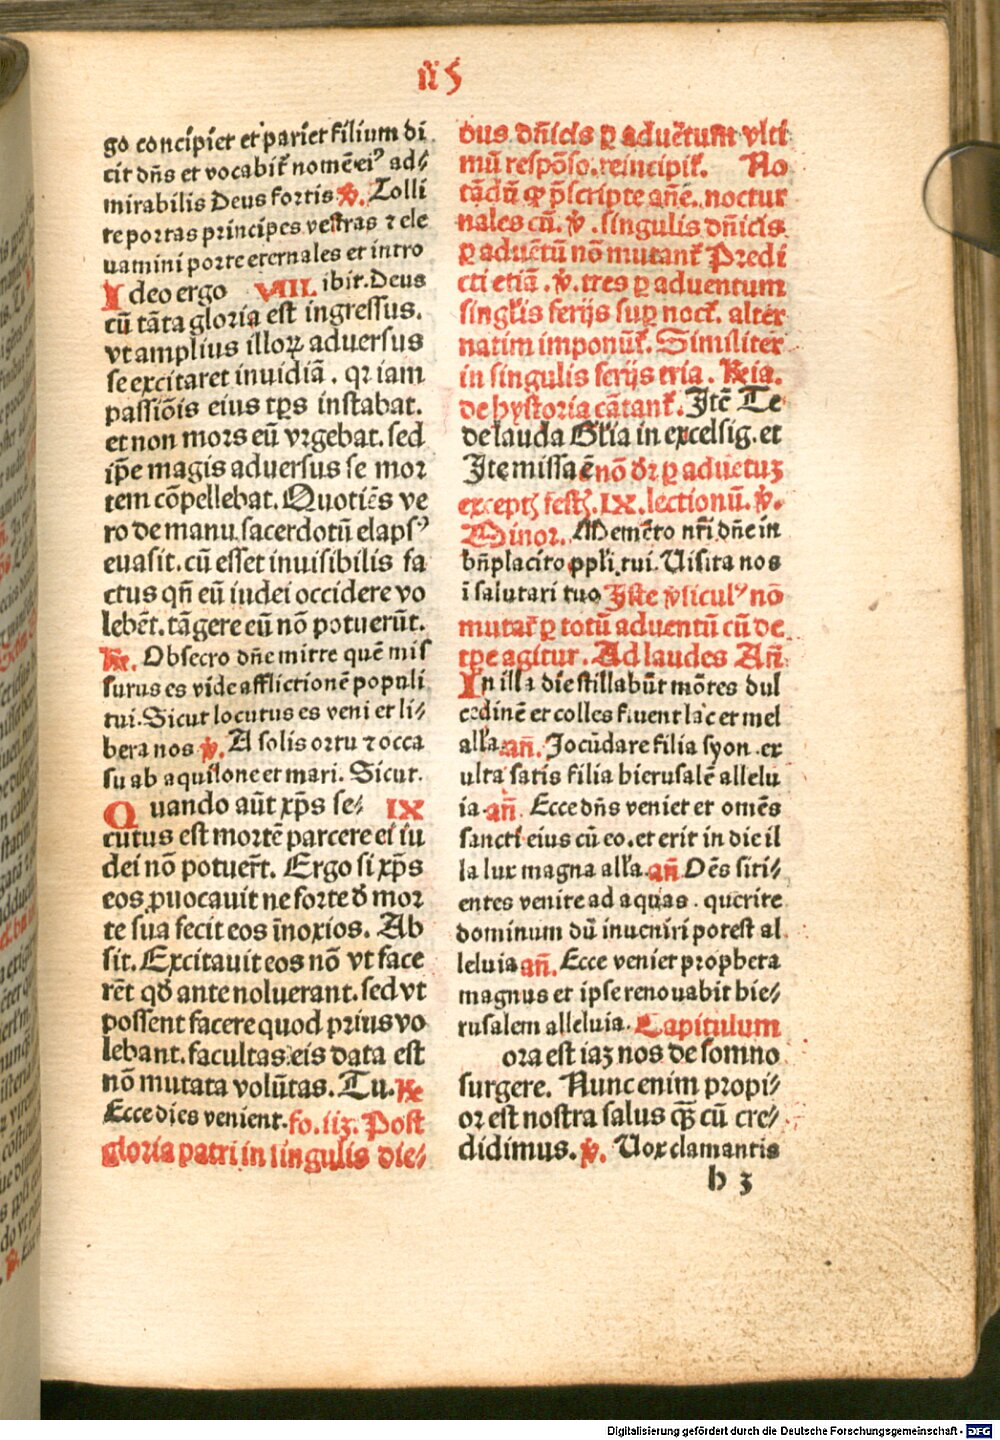 iii5
go concipiet et pariet filium di
cit dñs et vocabit̃ nomē eiꝰ ad⸗
mirabilis Deus fortis ꝟ. Tolli
te portas principes vestras ⁊ ele
uamini porte eternales et intro
Ideo ergo VIII. ibit. Deus
cū tāta gloria est ingressus.
vt amplius illoꝝ aduersus
se excitaret inuidiā. qꝛ iam
passiōis eius tꝑs instabat.
et non mors eū vrgebat. sed
ip̄e magis aduersus se mor
tem cōpellebat. Quotiēs ve
ro de manu sacerdotū elapsꝰ
euasit. cū esset inuisibilis fa
ctus qñ eū iudei occidere vo
lebēt. tāgere eū nō potuerūt.
℟. Obsecro dñe mitte quē mis
surus es vide afflictionē populi
tui. Sicut locutus es veni et li⸗
bera nos ꝟ. A solis ortu ⁊ occa
su ab aquilone et mari. Sicut.
Quando aūt xp̄s se⸗ IX
cutus est mortē parcere ei iu
dei nō potuer̄t. Ergo si xp̄s
eos ꝓuocauit ne forte ð mor
te sua fecit eos īnoxios. Ab
sit. Excitauit eos nō vt face
rēt qð ante noluerant. sed vt
possent facere quod prius vo
lebant. facultas eis data est
nō mutata volūtas. Tu. ℟
Ecce dies venient. fo. iiȝ. Post
gloria patri in singulis die⸗
bus dñicis ꝑ aduētum vlti
mū respōso. reincipit̃. No
tādū ꝙ p̄scripte añe. noctur
nales cū. ꝟ. singulis dñicis
ꝑ aduētū nō mutant̃ Predi
cti etiā. ꝟ. tres ꝑ aduentum
singl̃is ferijs suꝑ noct̃. alter
natim imponūt̃. Similiter
in singulis ferijs tria. ℟ia.
de hystoria cātant̃. Itē Te
de lauda Gl̃ia in excelsis. et
Ite missa ē nō dr̃ ꝑ aduētuȝ
exceptꝭ festꝭ. IX. lectionū. ꝟ.
Minor. Memēto nr̃i dñe in
bñplacito ppl̃i tui. Uisita nos
ī salutari tuo Iste ꝟsiculꝰ nō
mutat̃ ꝑ totū aduentū cū de
tp̄e agitur. Ad laudes Añ.
In illa die stillabūt mōtes dul
cedinē et colles fluent lac et mel
alľa. añ. Jocūdare filia syon. ex
ulta satis filia hierusalē allelu
ia. añ. Ecce dñs veniet et omēs
sancti eius cū eo. et erit in die il
la lux magna alľa. añ Oēs siti⸗
entes venite ad aquas. querite
dominum dū inueniri potest al
leluia añ. Ecce veniet propheta
magnus et ipse renouabit hie⸗
rusalem alleluia. Capitulum
ora est iaȝ nos de somno
surgere. Nunc enim propi⸗
or est nostra salus qꝫ̄ cū cre⸗
didimus. ꝟ. Uox clamantis
b 3
Digitalisierung gefördert durch die Deutsche Forschungsgemeinschaft - DFG